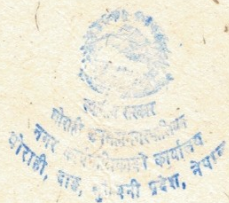 सरकार
घोराही उपमहानगरपालिका
नगर कार्यपालिकाको कार्यालय
घोराही, दाङ, लुम्बिनी प्रदेश, नेपाल